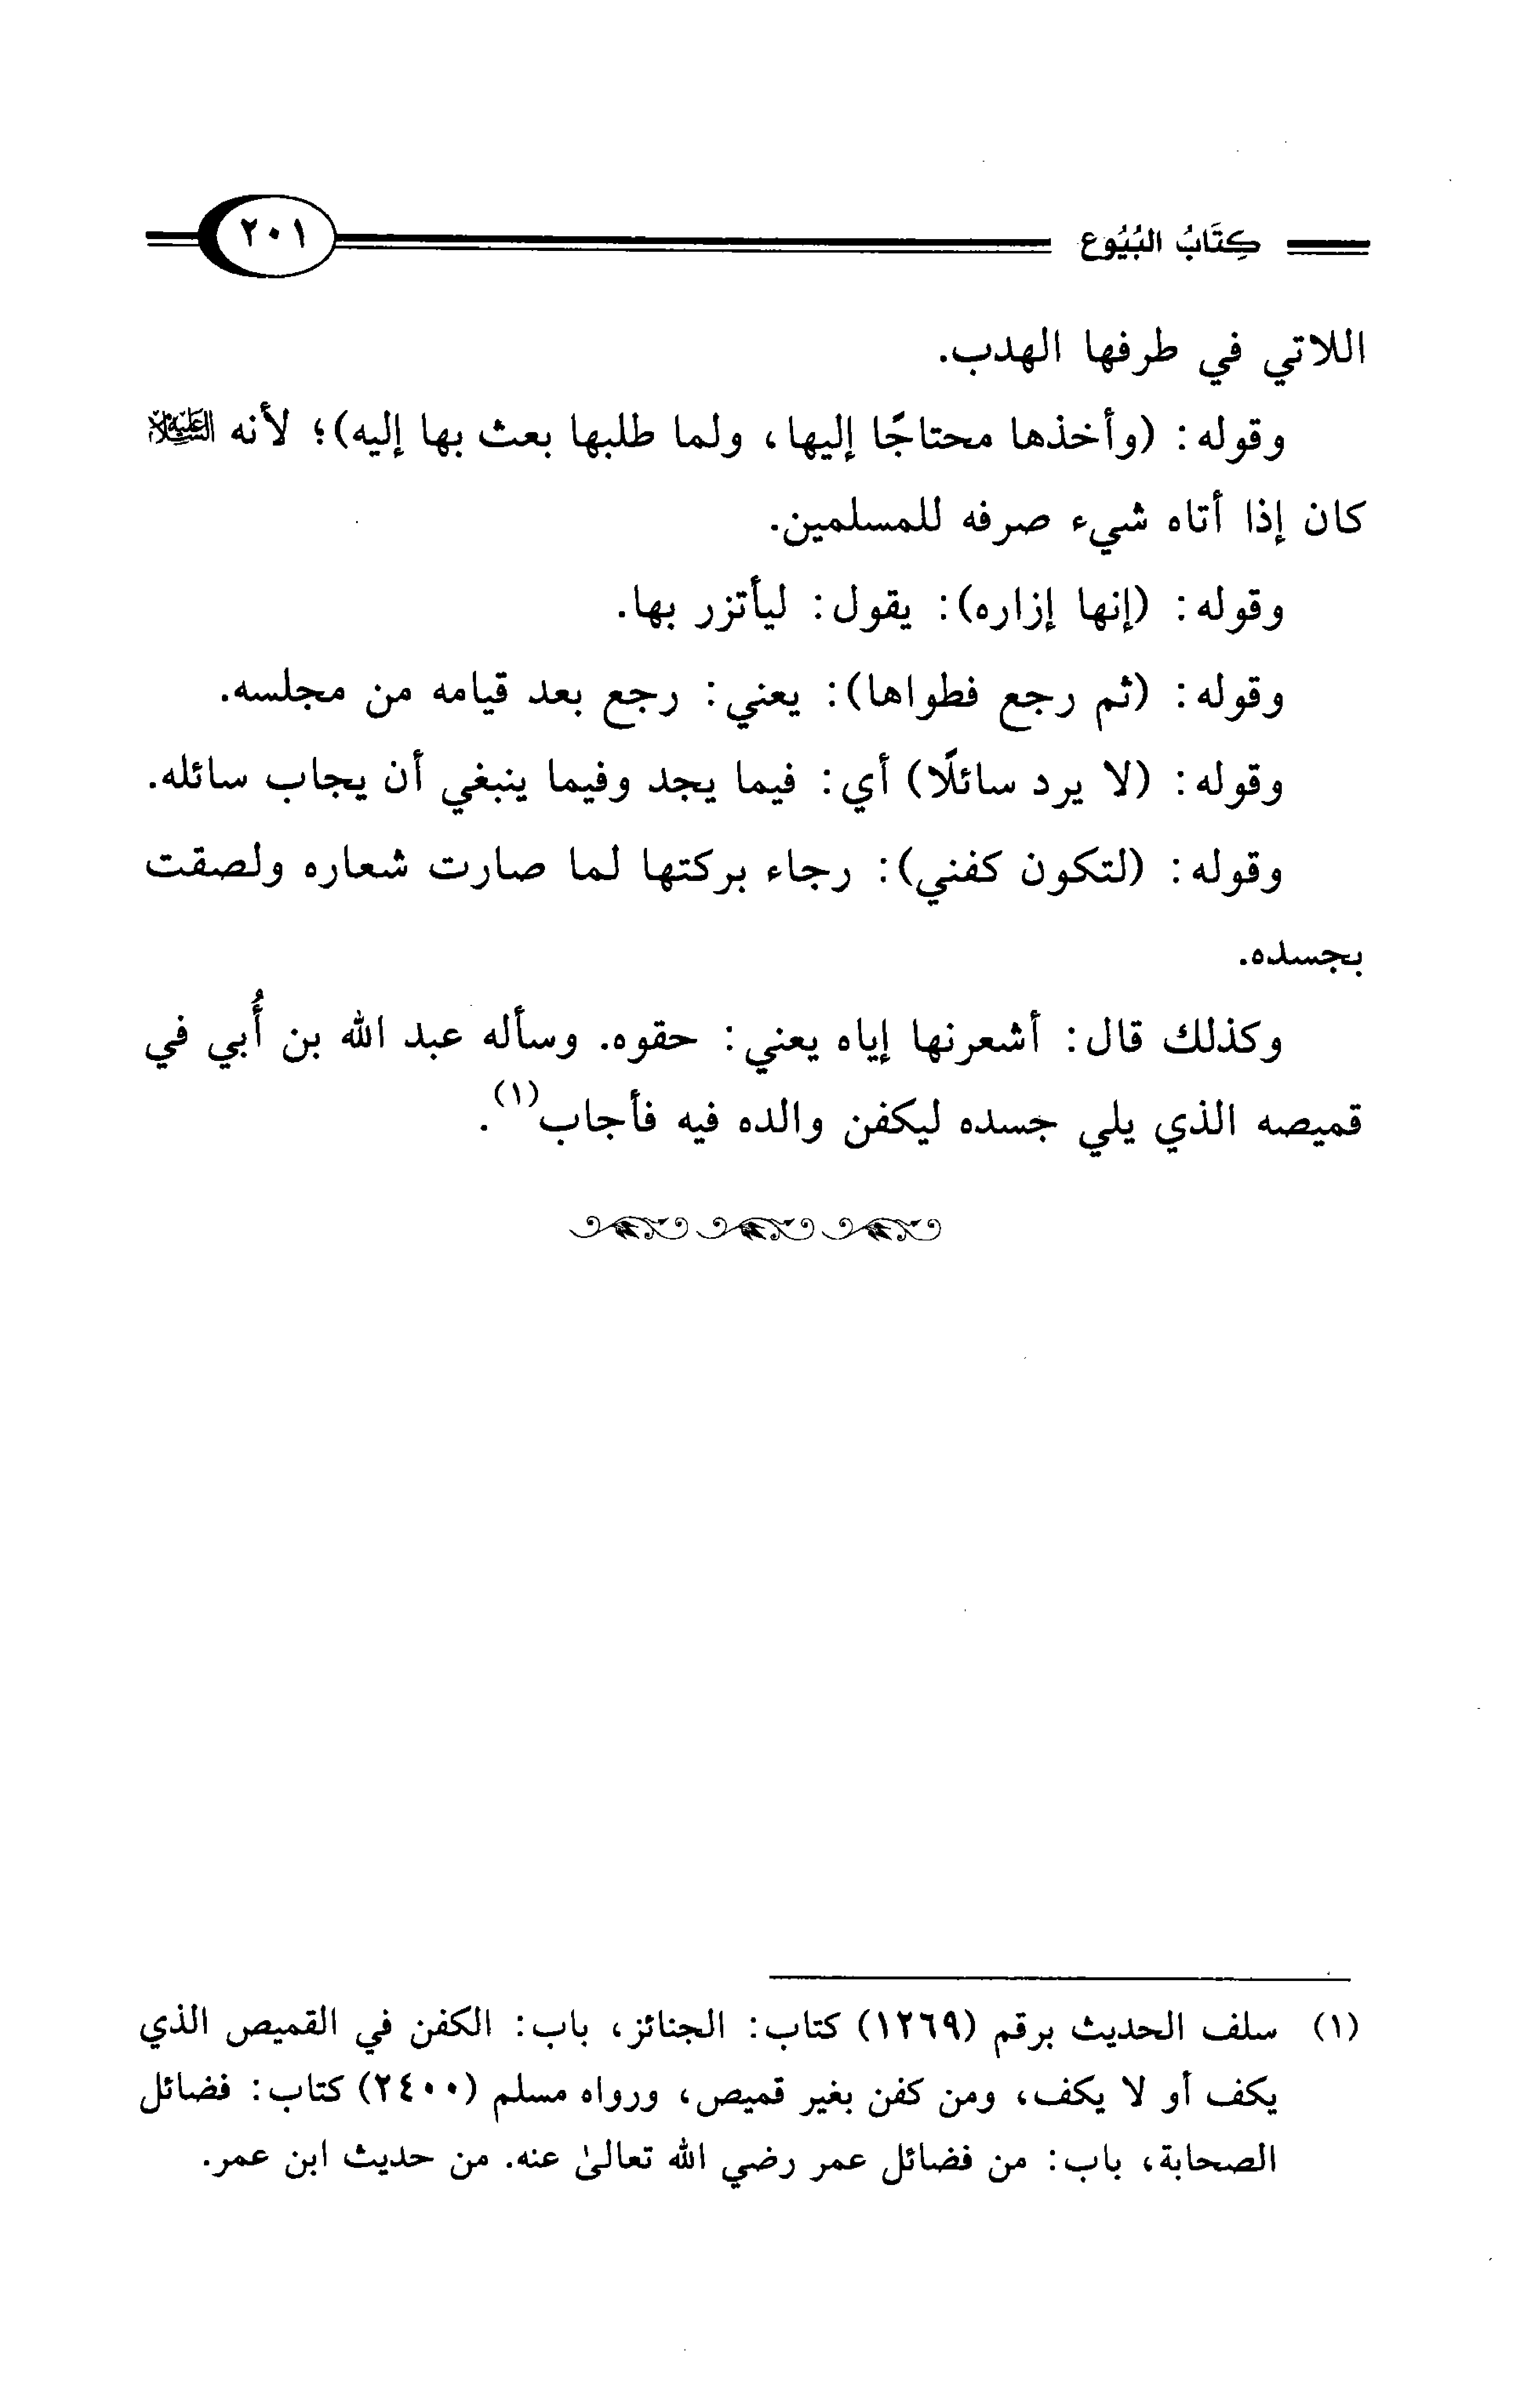 كِتَابُ البُيُوع ٢٠١
اللاتي في طرفها الهدب.
وقوله: (وأخذها محتاجًا إليها، ولما طلبها بعث بها إليه)؛ لأنه عليه السلام
كان إذا أتاه شيء صرفه للمسلمين.
وقوله: (إنها إزاره): يقول: ليأتزر بها.
وقوله: (ثم رجع فطواها): يعني: رجع بعد قيامه من مجلسه.
وقوله: (لا يرد سائلًا) أي: فيما يجد وفيما ينبغي أن يجاب سائله.
وقوله: (لتكون كفني): رجاء بركتها لما صارت شعاره ولصقت
بجسده.
وكذلك قال: أشعرنها إياه يعني: حقوه. وسأله عبد الله بن أُبي في
قميصه الذي يلي جسده ليكفن والده فيه فأجاب(١).
(١) سلف الحديث برقم (١٢٦٩) كتاب: الجنائز، باب: الكفن في القميص الذي
يكف أو لا يكف، ومن كفن بغير قميص، ورواه مسلم (٢٤٠٠) كتاب: فضائل
الصحابة، باب: من فضائل عمر رضي الله تعالىٰ عنه. من حديث ابن عمر.